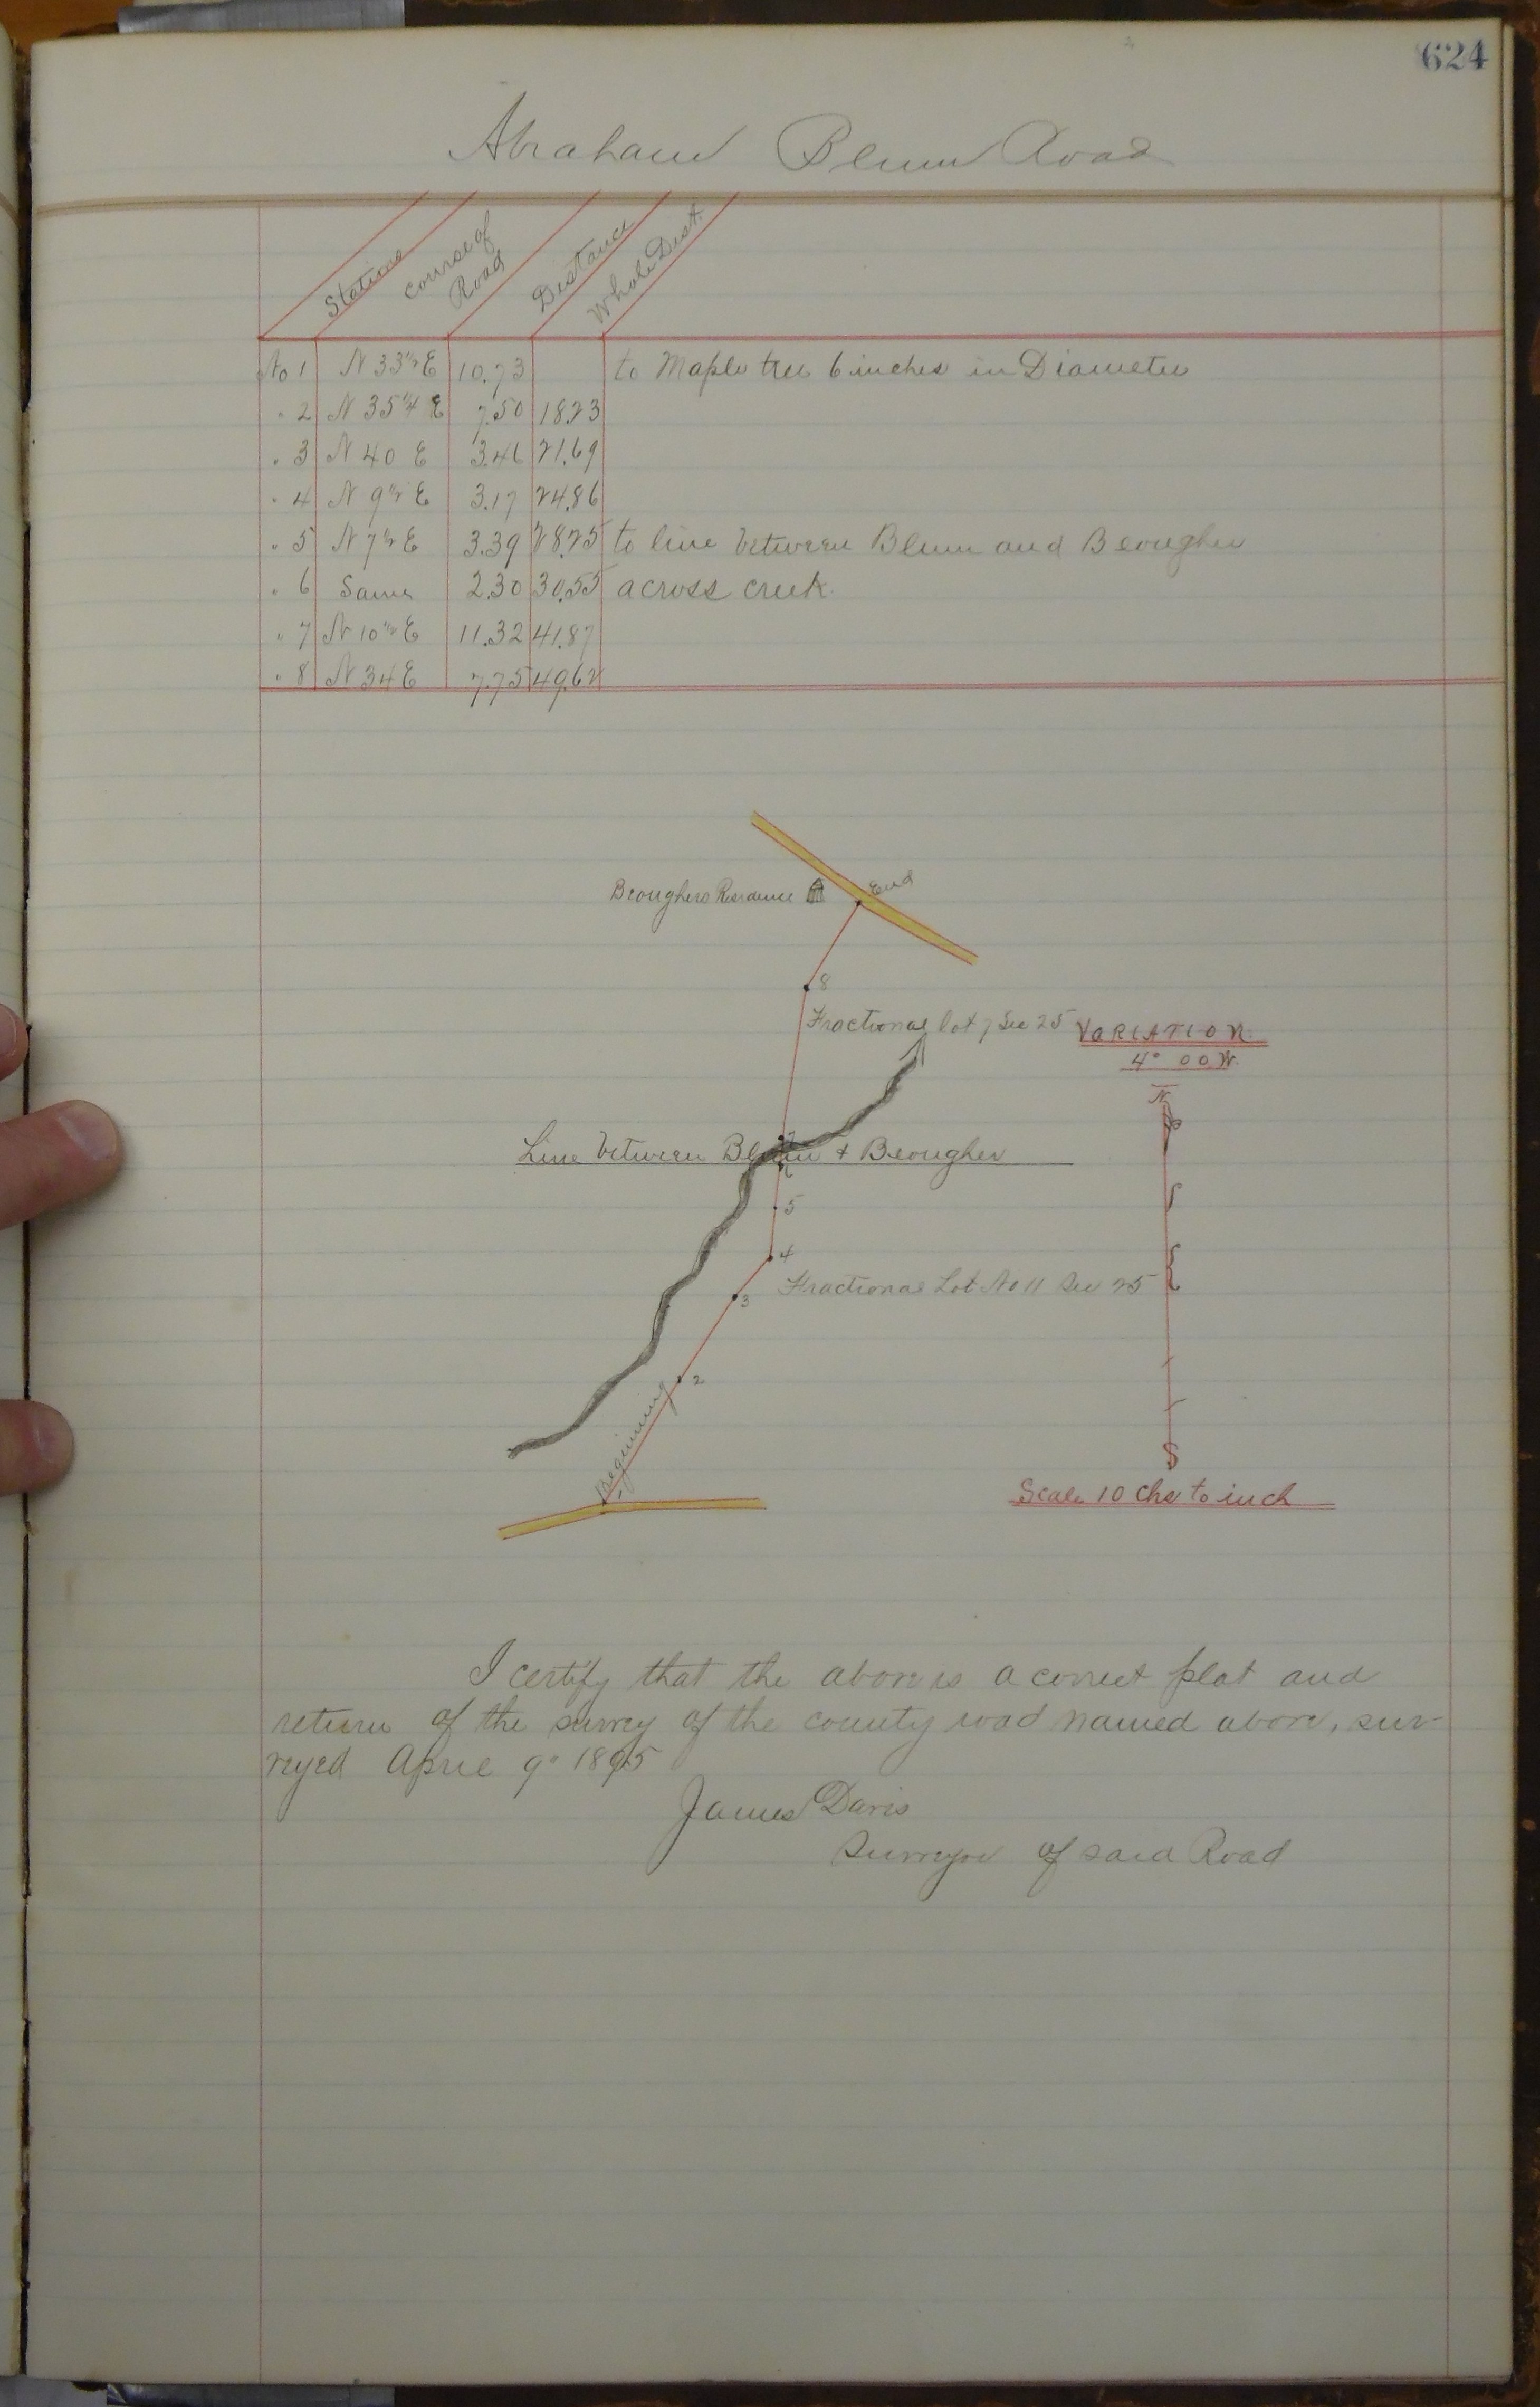 624
Abraham Blum Road
Stations
course of Road
Distance
Whole Dist.
No 1 N 33 1/2 E 10.73 to Maple tree 6 inches in Diameter
" 2 N 35 1/4 E 7.50 18.23
" 3 N 40 E 3.46 21.69
" 4 N 9 1/2 E 3.17 24.86
" 5 N 7 1/2 E 3.39 28.25 to line between Blum and Beougher
" 6 Same 2.30 30.55 across creek.
" 7 N 10 1/2 E 11.32 41.87
" 8 N 34 E 7.75 49.62
End
Beoughers Residence
8
Fractional lot 7 Sec 25
VARIATION
4° 00 W.
N
7
Line between Blum & Beougher
6
5
4
Fractional Lot No 11 Sec 25
3
2
Beginning
1
S
Scale 10 Chs to inch
I certify that the above is a correct plat and
return of the survey of the county road named above, sur-
veyed April 9" 1895
James Davis
Surveyor of said Road